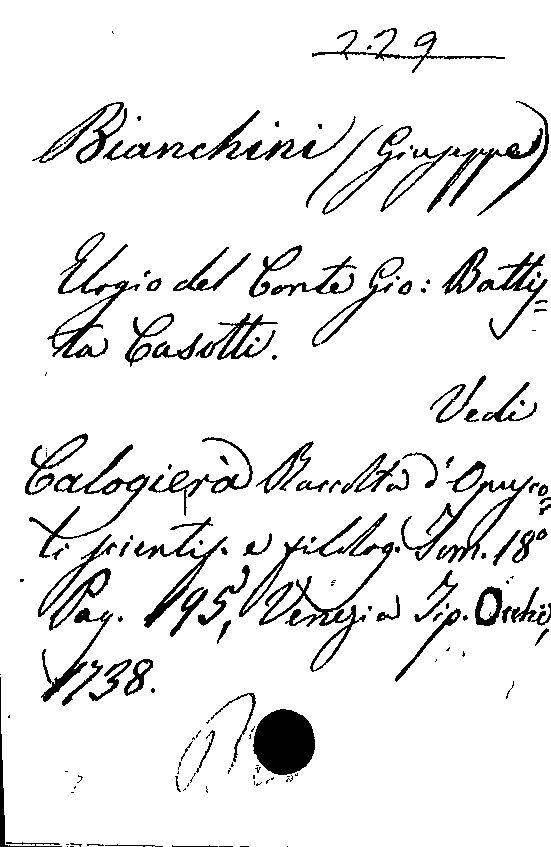 229
Bianchini (Giuseppe)
Elogio del Conte Gio: Battis=
ta Casotti.
Vedi
Calogierà Raccolta d'Opusco=
li scientif. e filolog. Tom. 18°
Pag. 195, Venezia Tip. Occhi,
1738.